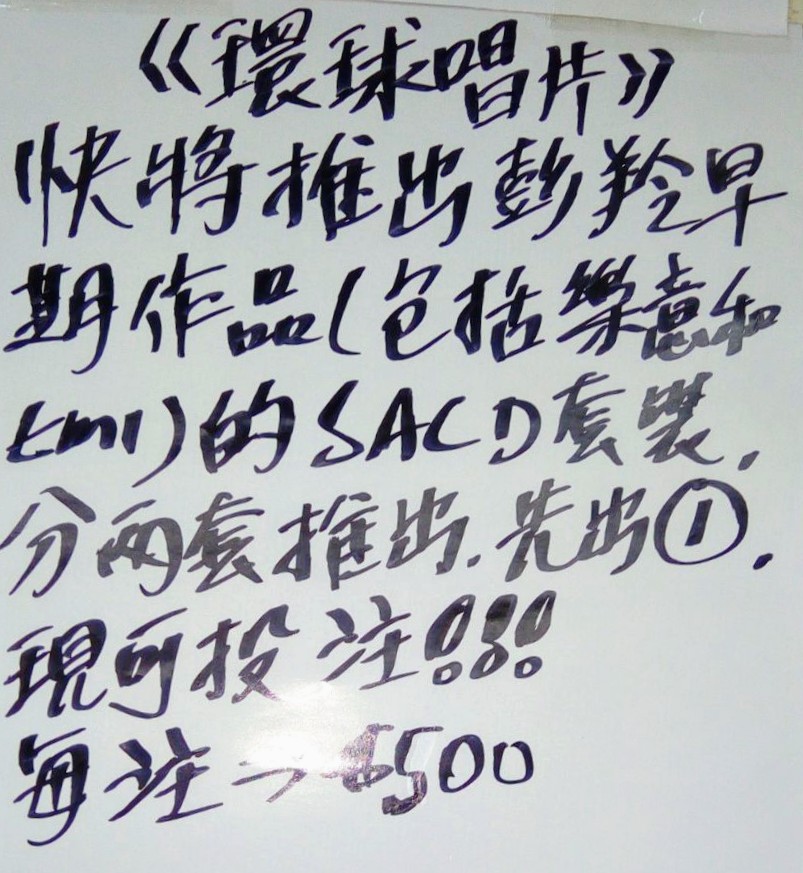 《環球唱片》
快將推出彭羚早
期作品(包括樂意和
EMI)的SACD套裝,
分兩套推出.先出①.
現可投注!!!
每注→$500